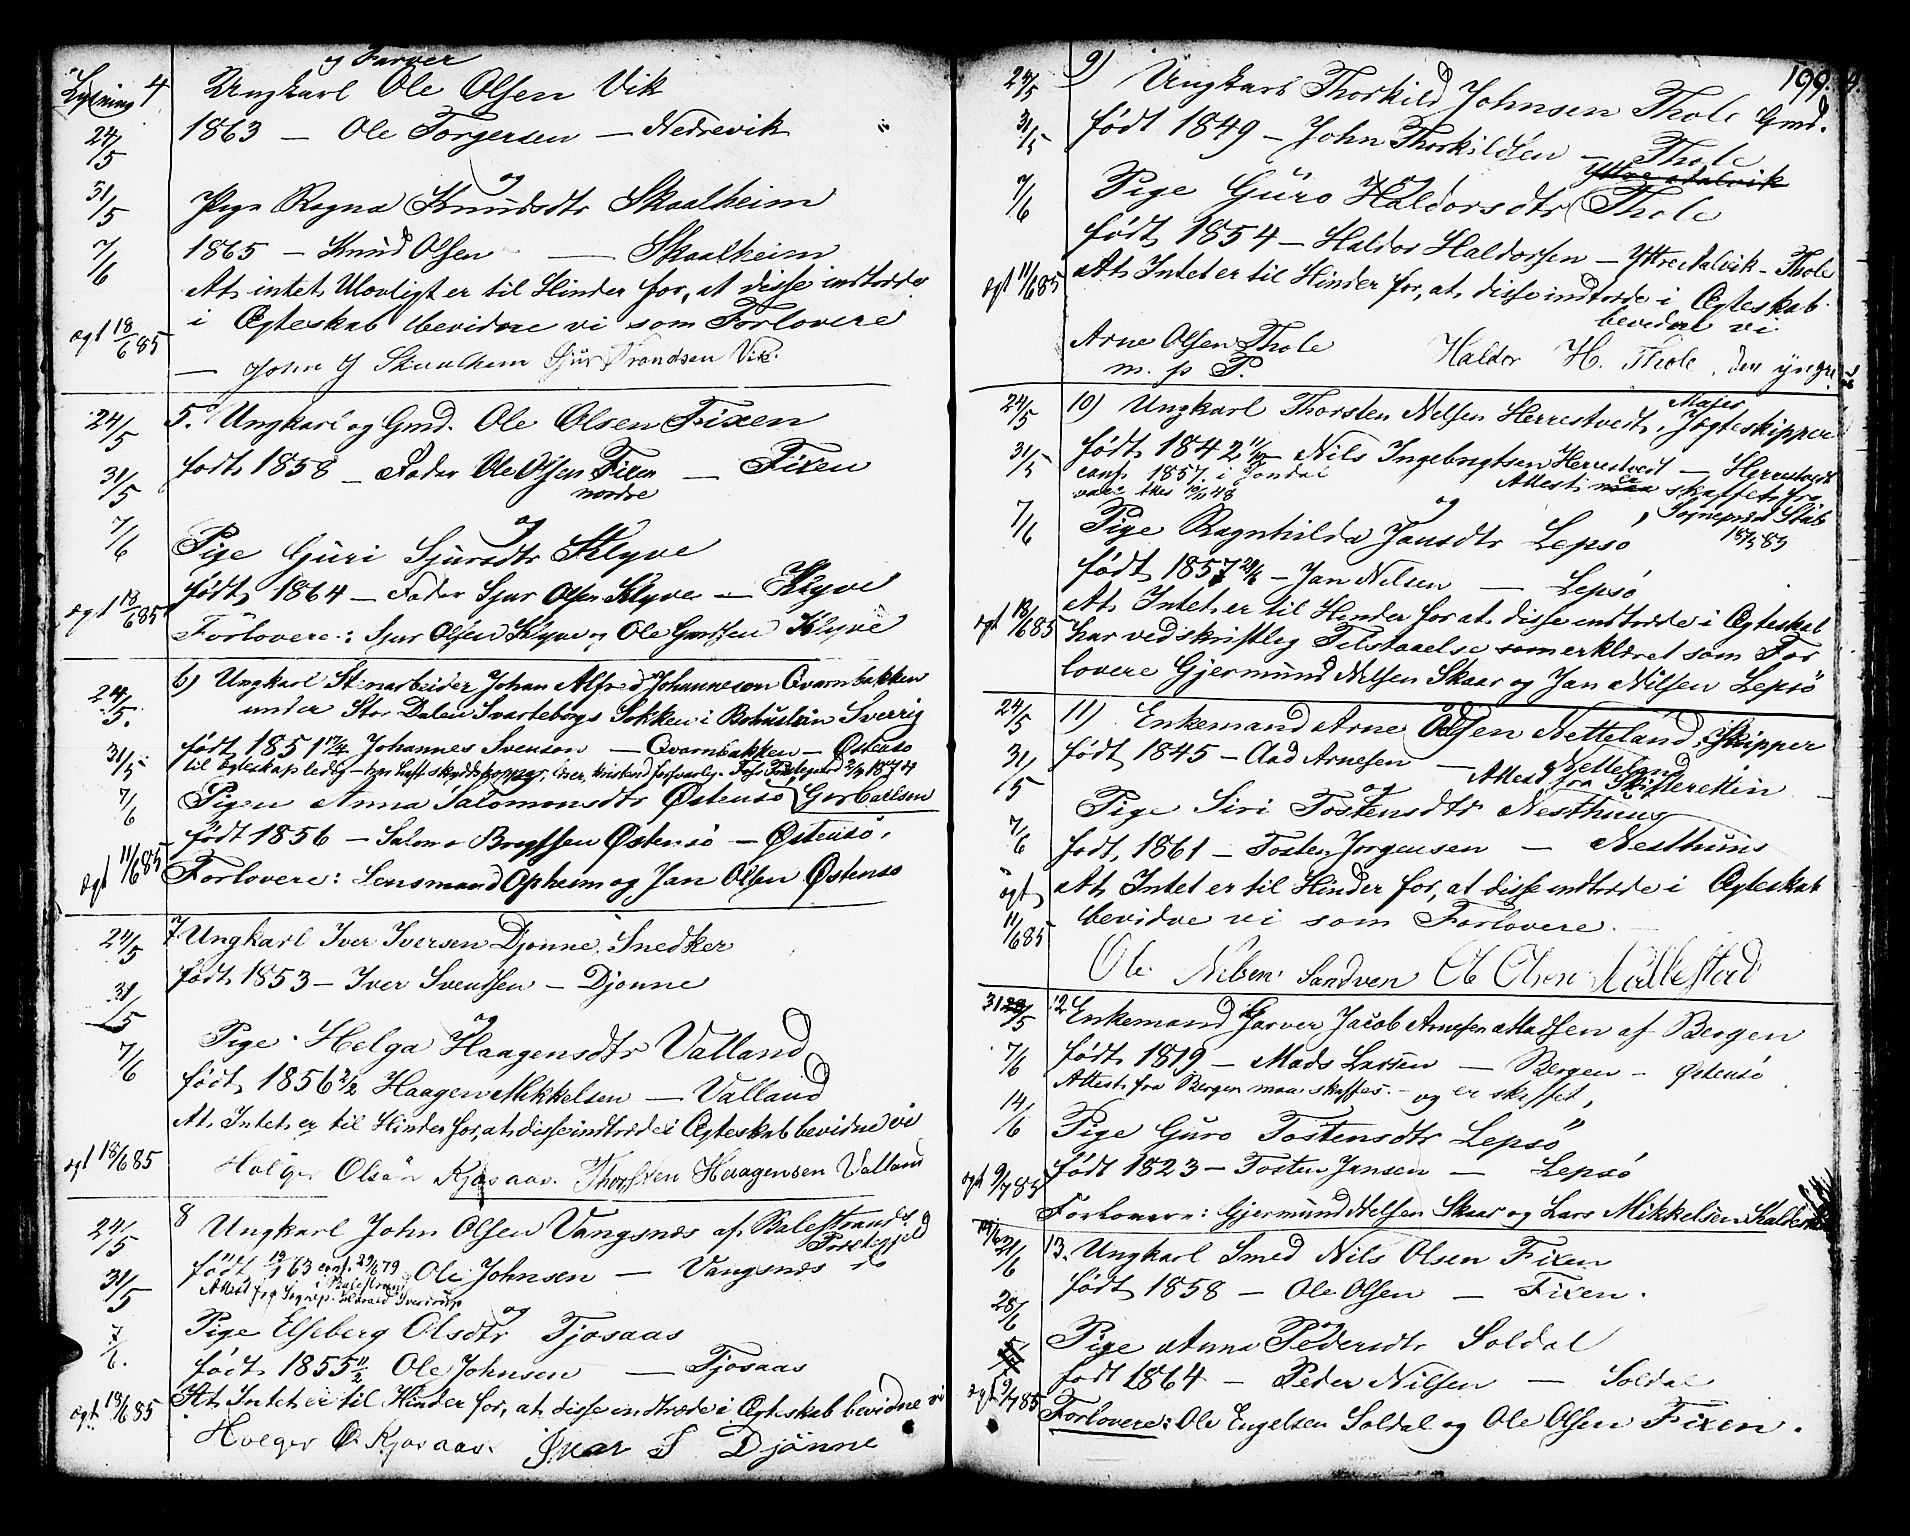 Lysning 4 og Farver
Ungkarl Ole Olsen Vik
24/5 1863 — Ole Torgersen — Nedrevik "
og
31/5 Pige Ragna Knudsdtr Skaalheim
7/6 1865 — Knud Olsen — Skaalheim
At intet Ulovligt er til Hinder for, at disse indtræde
ægt 18/6 85 i Ægteskab bevidne vi som Forlovere
— John J Skaalheim Sjur Trondsen Vik.
24/5 5. Ungkarl og Gmd. Ole Olsen Fixen
31/5 født 1858 — Fader Ole Olsen Fixen — Fixen
nordre
og
7/6 Pige Guri Sjursdtr Klyve
født 1864 — Fader Sjur Olsen Klyve — Klyve
ægt 18/6 85 Forlovere: Sjur Olsen Klyve og Ole Klyve
24/5. 6) Ungkarl Stenarbeider Johan Alfred Johanneson Qvarnbakken
under Stor Dalen Svarteborgs Sokken i Bohuslän Sverrig
31/5 født 1851 17/4 Johannes Svenson — Qvarnbakken — Østensø
til Ægteskap ledig
7/6 Pigen Anna Salomonsdtr Østensø Carlsen
født 1856 — Østensø — Østensø.
ægt 11/6 85 Forlovere: Lensmand Opheim og Jan Olsen Østensø
24/5 7. Ungkarl Iver Iversen Djønne, Snedker
31/5 født 1853 — Iver Svendsen — Djønne
og
7/6 Pige Helga Haagensdtr Valland
født 1856 2/2 Haagen Mikkelsen — Valland
At Intet er til Hinder for, at disse indtræde i Ægteskab bevidne vi
ægt 18/6 85 Holger Olsøn Kjosaas. Thorsten Haagensen Valland
24/5 8 Ungkarl John Olsen Vangsnæs af Balestrands
Præstegjeld
31/5 født 19/1 63 conf. 29/6 79 Ole Johnsen — Vangsnæs do
i Balestrand
Attest fra Sognep. Sverdrup
og
7/6. Pige Elseberg Olsdtr Tjosaas
født 1855 11/2 Ole Johnsen — Tjosaas
ægt 18/6 85 At Intet er til Hinder for, at disse indtræde i Ægteskab bevidne vi
Holger O. Kjosaas. Ivar S Djønne
199.
24/5 9) Ungkarl Thorkild Johnsen Thole Gmd.
31/5 født 1849 — John Thorkildsen — Thole
Yttre Aalvik
7/6 Pige Guro Haldorsdtr Thole
født 1854 — Haldor Haldorsen — Yttre Aalvik - Thole
ægt 11/6 85 At Intet er til Hinder for, at disse indtræde i Ægteskab
bevidne vi
Arne Olsen Thole Haldor H. Thole, den yngre
m. p P.
24/5 10) Ungkarl Thorsten Nilsen Herrestvedt, Jægteskipper
31/5 født 1842 — Nils Ingebrigtsen Herrestvedt — Herrestvedt
conf. 1857 i Jondal Attest skaffet fra
Sogneprest
og
7/6 Pige Ragnhilda Jansdtr Lepsø
født 1857 — Jan Nilsen — Lepsø
At Intet er til Hinder for at disse indtræde i Ægteskab
ægt 18/6 85 har ved skriftlig Tilstaaelse som erklæret som For
lovere Gjermund Nilsen Skaar og Jan Nilsen Lepsø
24/5 11) Enkemand Arne Odsen Netteland, Skipper
31/5 født 1845 — Aad Arnesen — Netteland
Attest fra Skifteretten
og
Pige Siri Tostensdtr Nesthuus
7/6 født 1861 — Tosten Jørgensen — Nesthuus
ægt At Intet er til Hinder for, at disse indtræde i Ægteskab
11/6 85 bevidne vi som Forlovere.
Ole Nilsen Sandven Ole Olsen
31/5 12 Enkemand Garver Jacob Arnesen Madsen af Bergen
7/6 født 1819 — Mads Larsen — Bergen - Østensø
Attest fra Bergen maa skaffes. — og er skaffet,
14/6 Pige Guro Tostensdtr Lepsø
ægt 9/7 85 født 1823 — Tosten Jansen — Lepsø
Forlovere: Gjermund Nilsen Skaar og Lars Mikkelsen
21/6 13. Ungkarl Smed Nils Olsen Fixen
28/6 født 1858 — Ole Olsen — Fixen.
og
Pige Anna Pedersdtr Soldal
født 1864 — Peder Nilsen — Soldal
ægt 9/7 85 Forlovere: Ole Engelsen Soldal og Ole Olsen Fixen.